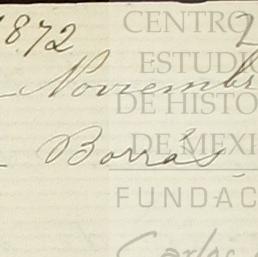 1872 2
Noviembr
Borrás
CENTRO
ESTUDIO
DE HISTO
DE MEXI
FUNDAC
Carlos